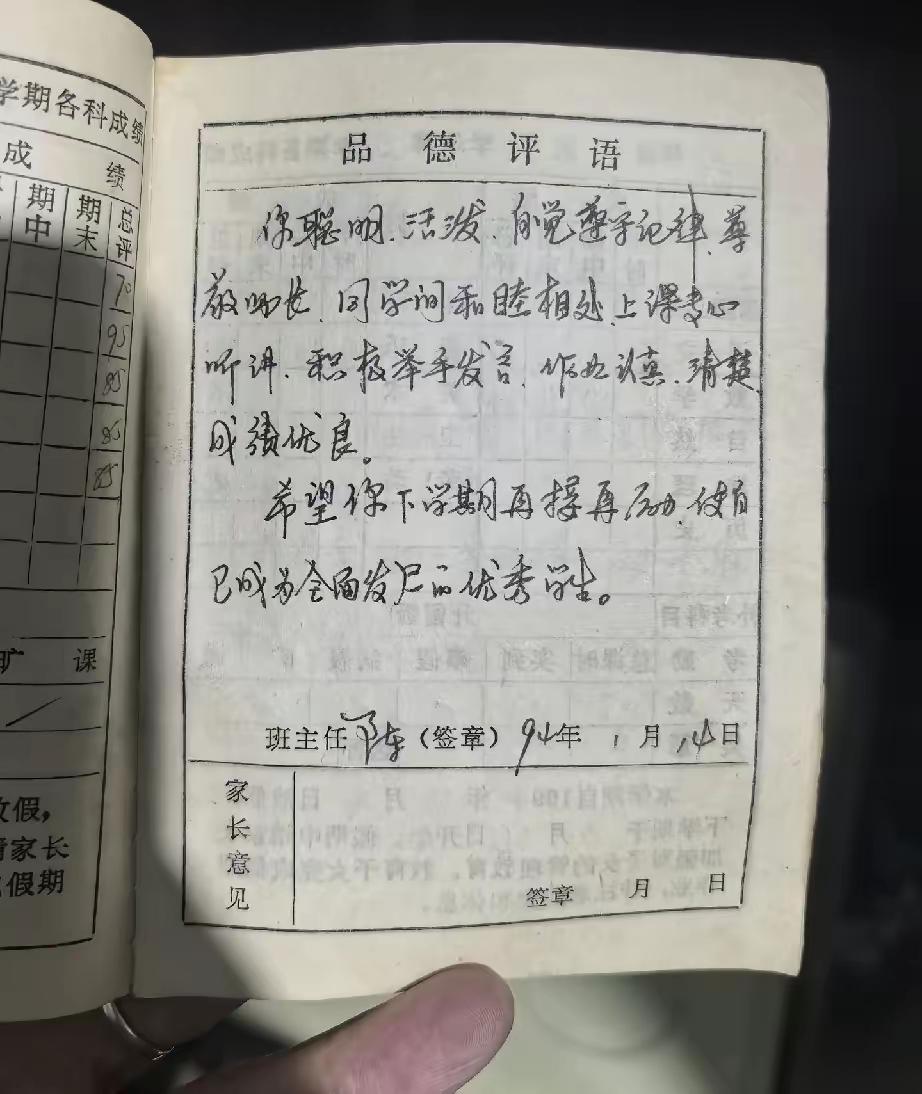 学期各科成绩
成 绩
期中 期末 总评
70
95
85
86
85
旷 课
放假，
请家长
假期
品 德 评 语
你聪明、活泼、自觉遵守记律、尊
敬师长、同学间和睦相处、上课专心
听讲、积极举手发言、作业认真、清楚
成绩优良。
希望你下学期再接再厉、使自
己成为全面发尸的优秀学生。
班主任（签章）94年 1月14日
家长意见
签章 月 日